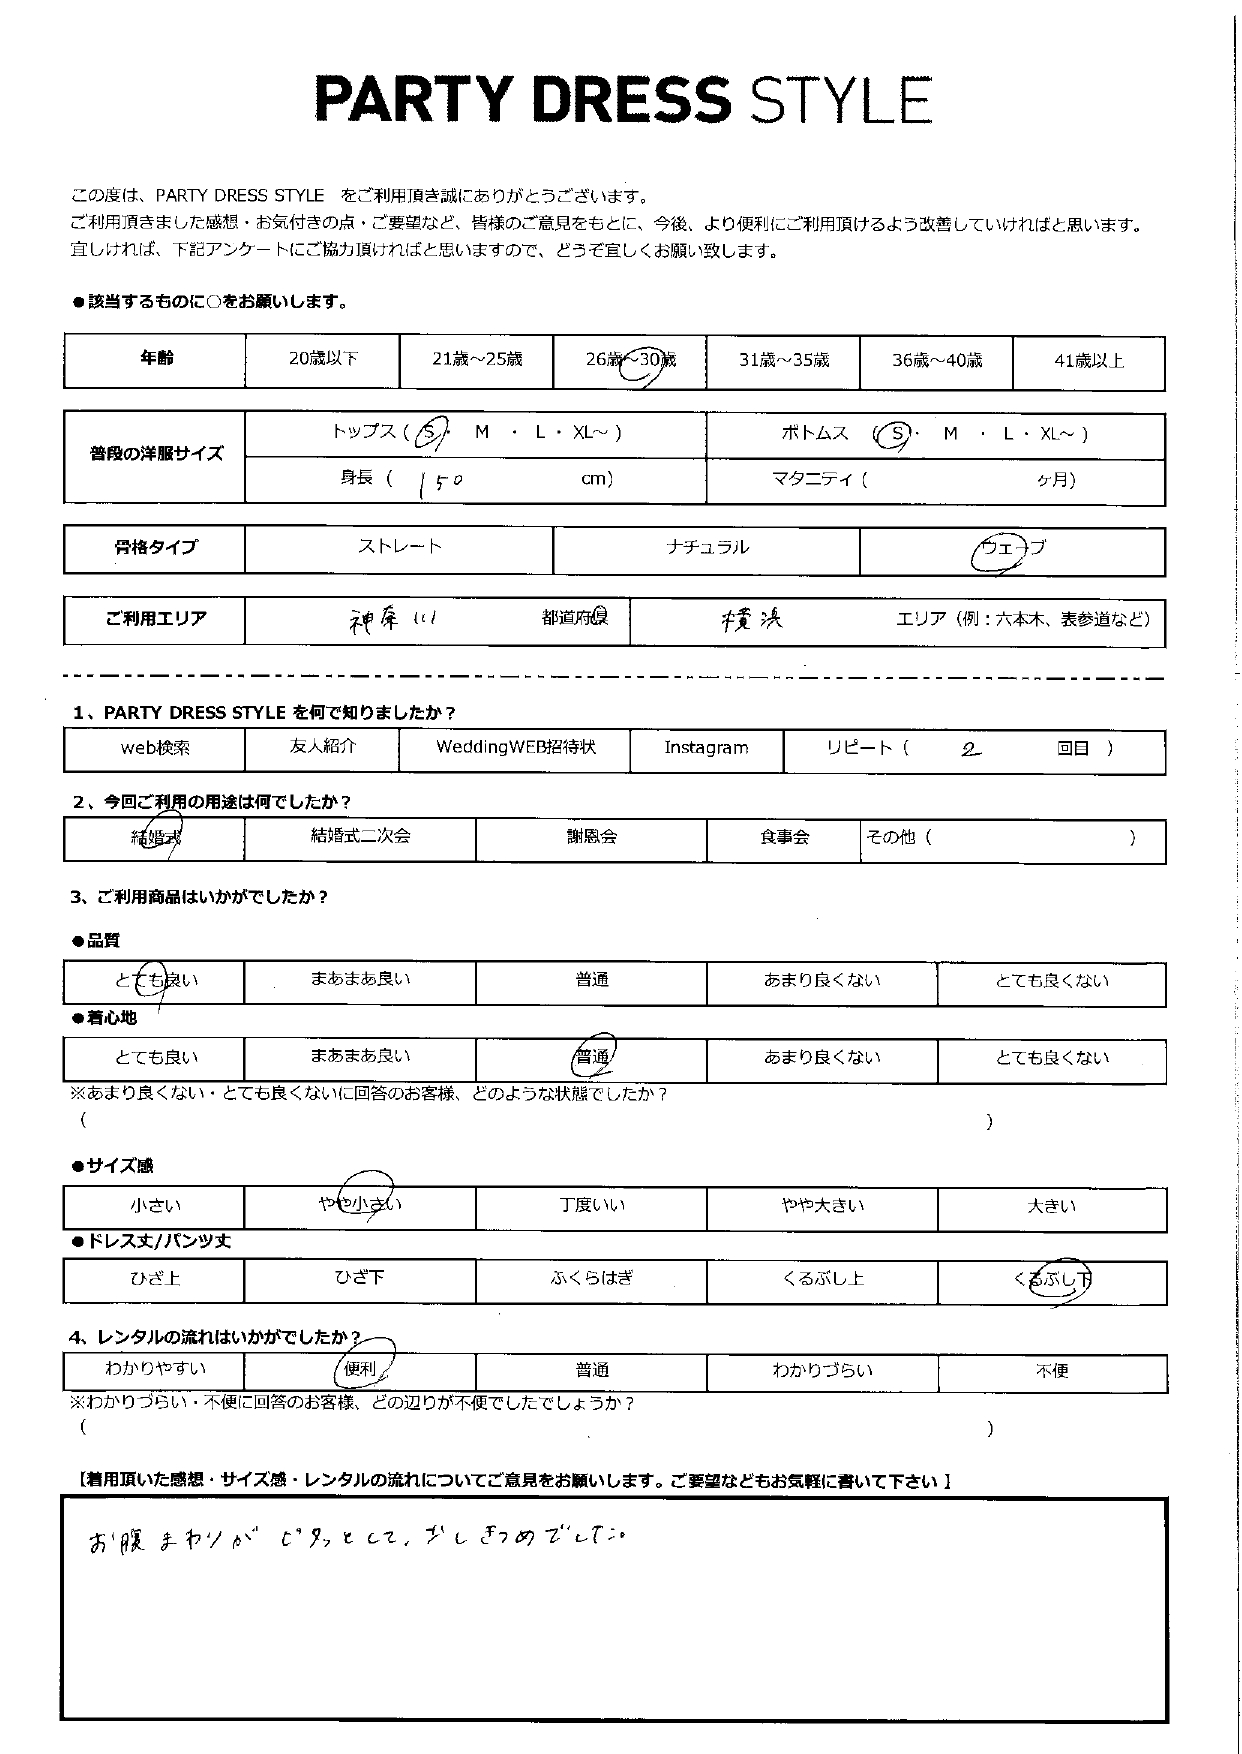 PARTY DRESS STYLE
この度は、PARTY DRESS STYLE をご利用頂き誠にありがとうございます。
ご利用頂きました感想・お気付きの点・ご要望など、皆様のご意見をもとに、今後、より便利にご利用頂けるよう改善していければと思います。
宜しければ、下記アンケートにご協力頂ければと思いますので、どうぞ宜しくお願い致します。
●該当するものに○をお願いします。
年齢 20歳以下 21歳～25歳 26歳～30歳 31歳～35歳 36歳～40歳 41歳以上
普段の洋服サイズ トップス ( S ・ M ・ L ・ XL～ ) ボトムス ( S ・ M ・ L ・ XL～ )
身長 ( 150 cm) マタニティ ( ケ月)
骨格タイプ ストレート ナチュラル ウェーブ
ご利用エリア 神奈川 都道府県 横浜 エリア（例：六本木、表参道など）
1、PARTY DRESS STYLE を何で知りましたか？
web検索 友人紹介 WeddingWEB招待状 Instagram リピート ( 2 回目 )
2、今回ご利用の用途は何でしたか？
結婚式 結婚式二次会 謝恩会 食事会 その他 ( )
3、ご利用商品はいかがでしたか？
●品質
とても良い まあまあ良い 普通 あまり良くない とても良くない
●着心地
とても良い まあまあ良い 普通 あまり良くない とても良くない
※あまり良くない・とても良くないに回答のお客様、どのような状態でしたか？
( )
●サイズ感
小さい やや小さい 丁度いい やや大きい 大きい
●ドレス丈/パンツ丈
ひざ上 ひざ下 ふくらはぎ くるぶし上 くるぶし下
4、レンタルの流れはいかがでしたか？
わかりやすい 便利 普通 わかりづらい 不便
※わかりづらい・不便に回答のお客様、どの辺りが不便でしたでしょうか？
( )
【着用頂いた感想・サイズ感・レンタルの流れについてご意見をお願いします。ご要望などもお気軽に書いて下さい】
お腹まわりがピタッとして、少しきつめでした。